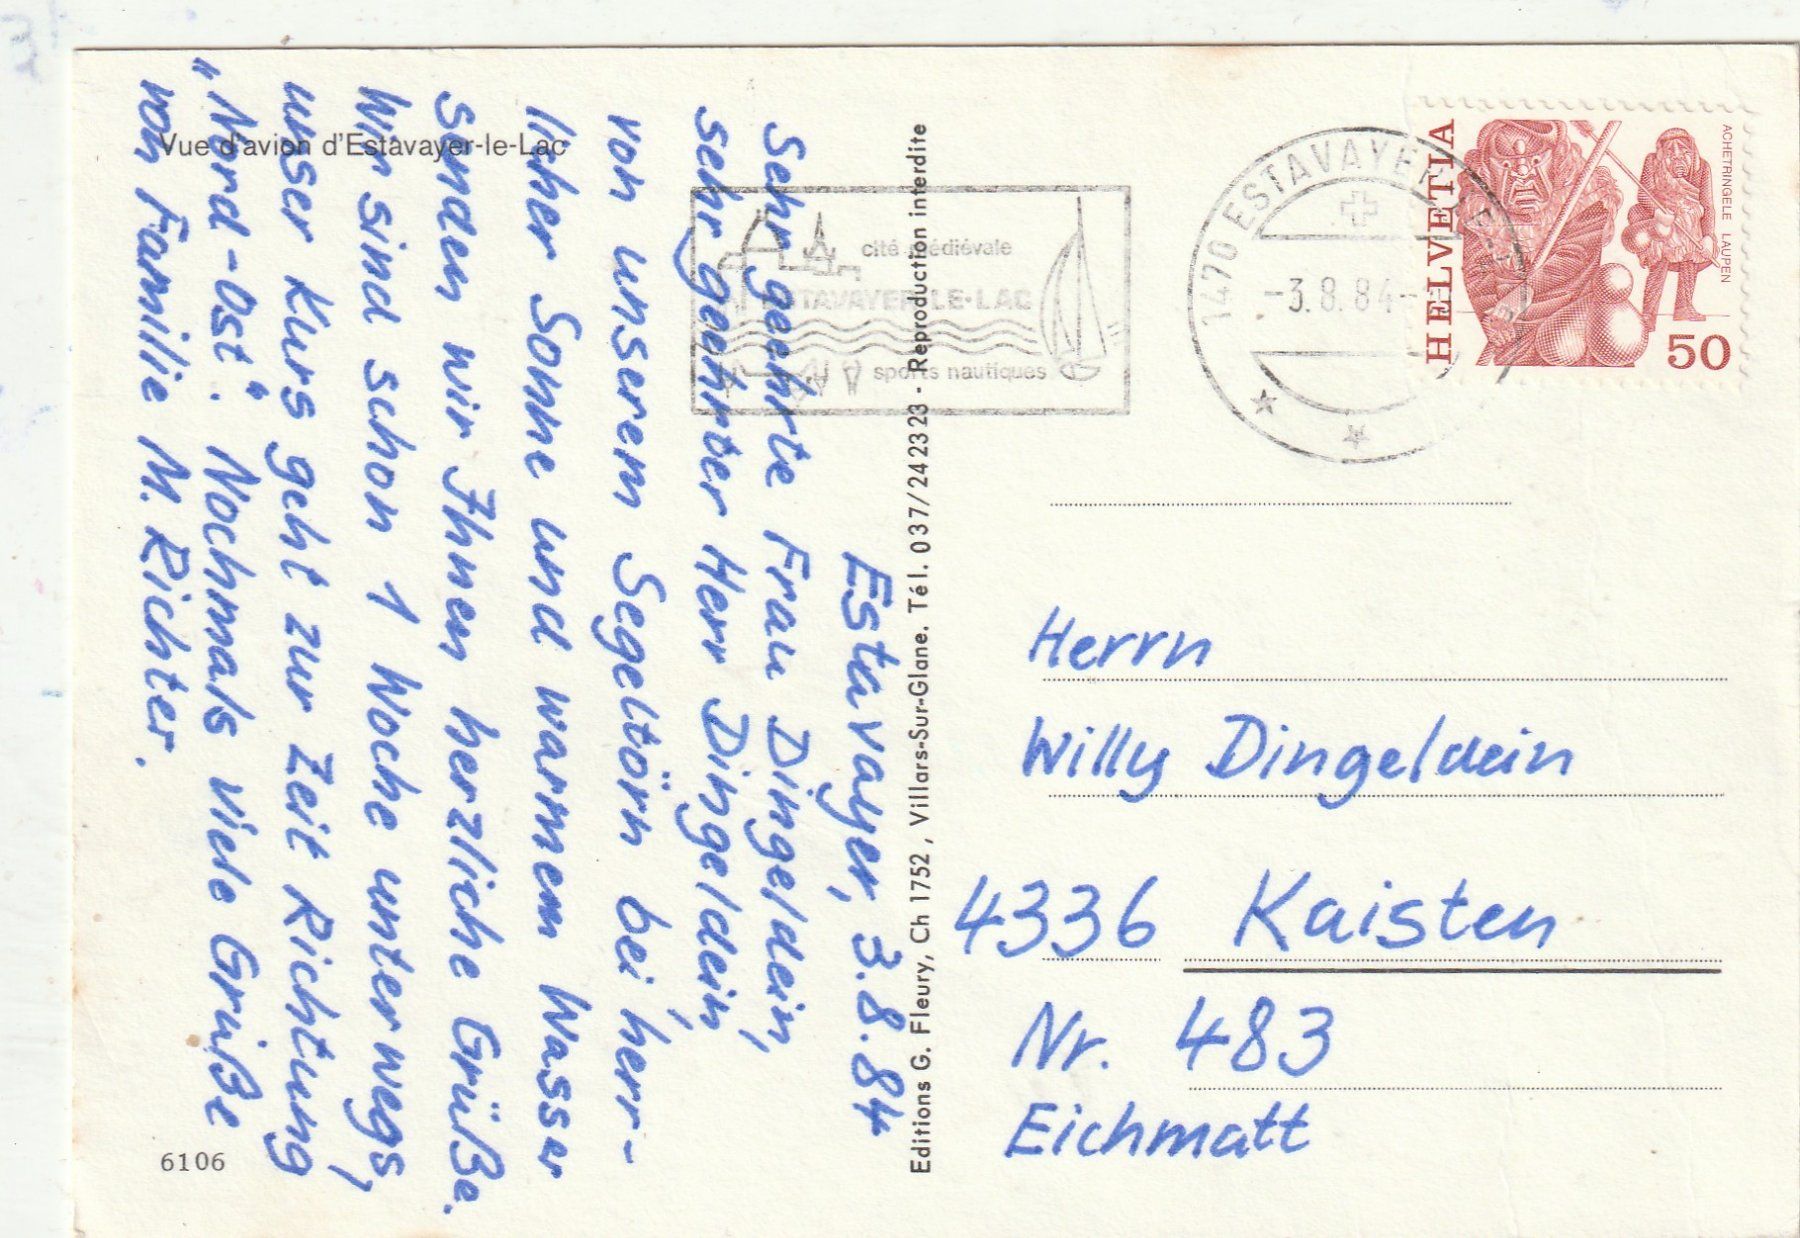 Vue d'avion d'Estavayer-le-Lac
Estavayer, 3.8.84
Sehr geehrte Frau Dingeldein,
sehr geehrter Herr Dingeldein,
von unserem Segeltörn bei herr-
licher Sonne und warmem Wasser
senden wir Ihnen herzliche Grüße.
Wir sind schon 1 Woche unterwegs,
unser Kurs geht zur Zeit Richtung
"Nord-Ost". Nochmals viele Grüße
von Familie M. Richter.
6106
Editions G. Fleury, Ch 1752, Villars-Sur-Glane. Tél. 037/242323 - Reproduction interdite
cité médiévale
ESTAVAYER-LE-LAC
sports nautiques
1470 ESTAVAYER-LE-LAC
-3.8.84-
HELVETIA
ACHETRINGELE LAUPEN
50
Herrn
Willy Dingeldein
4336 Kaisten
Nr. 483
Eichmatt